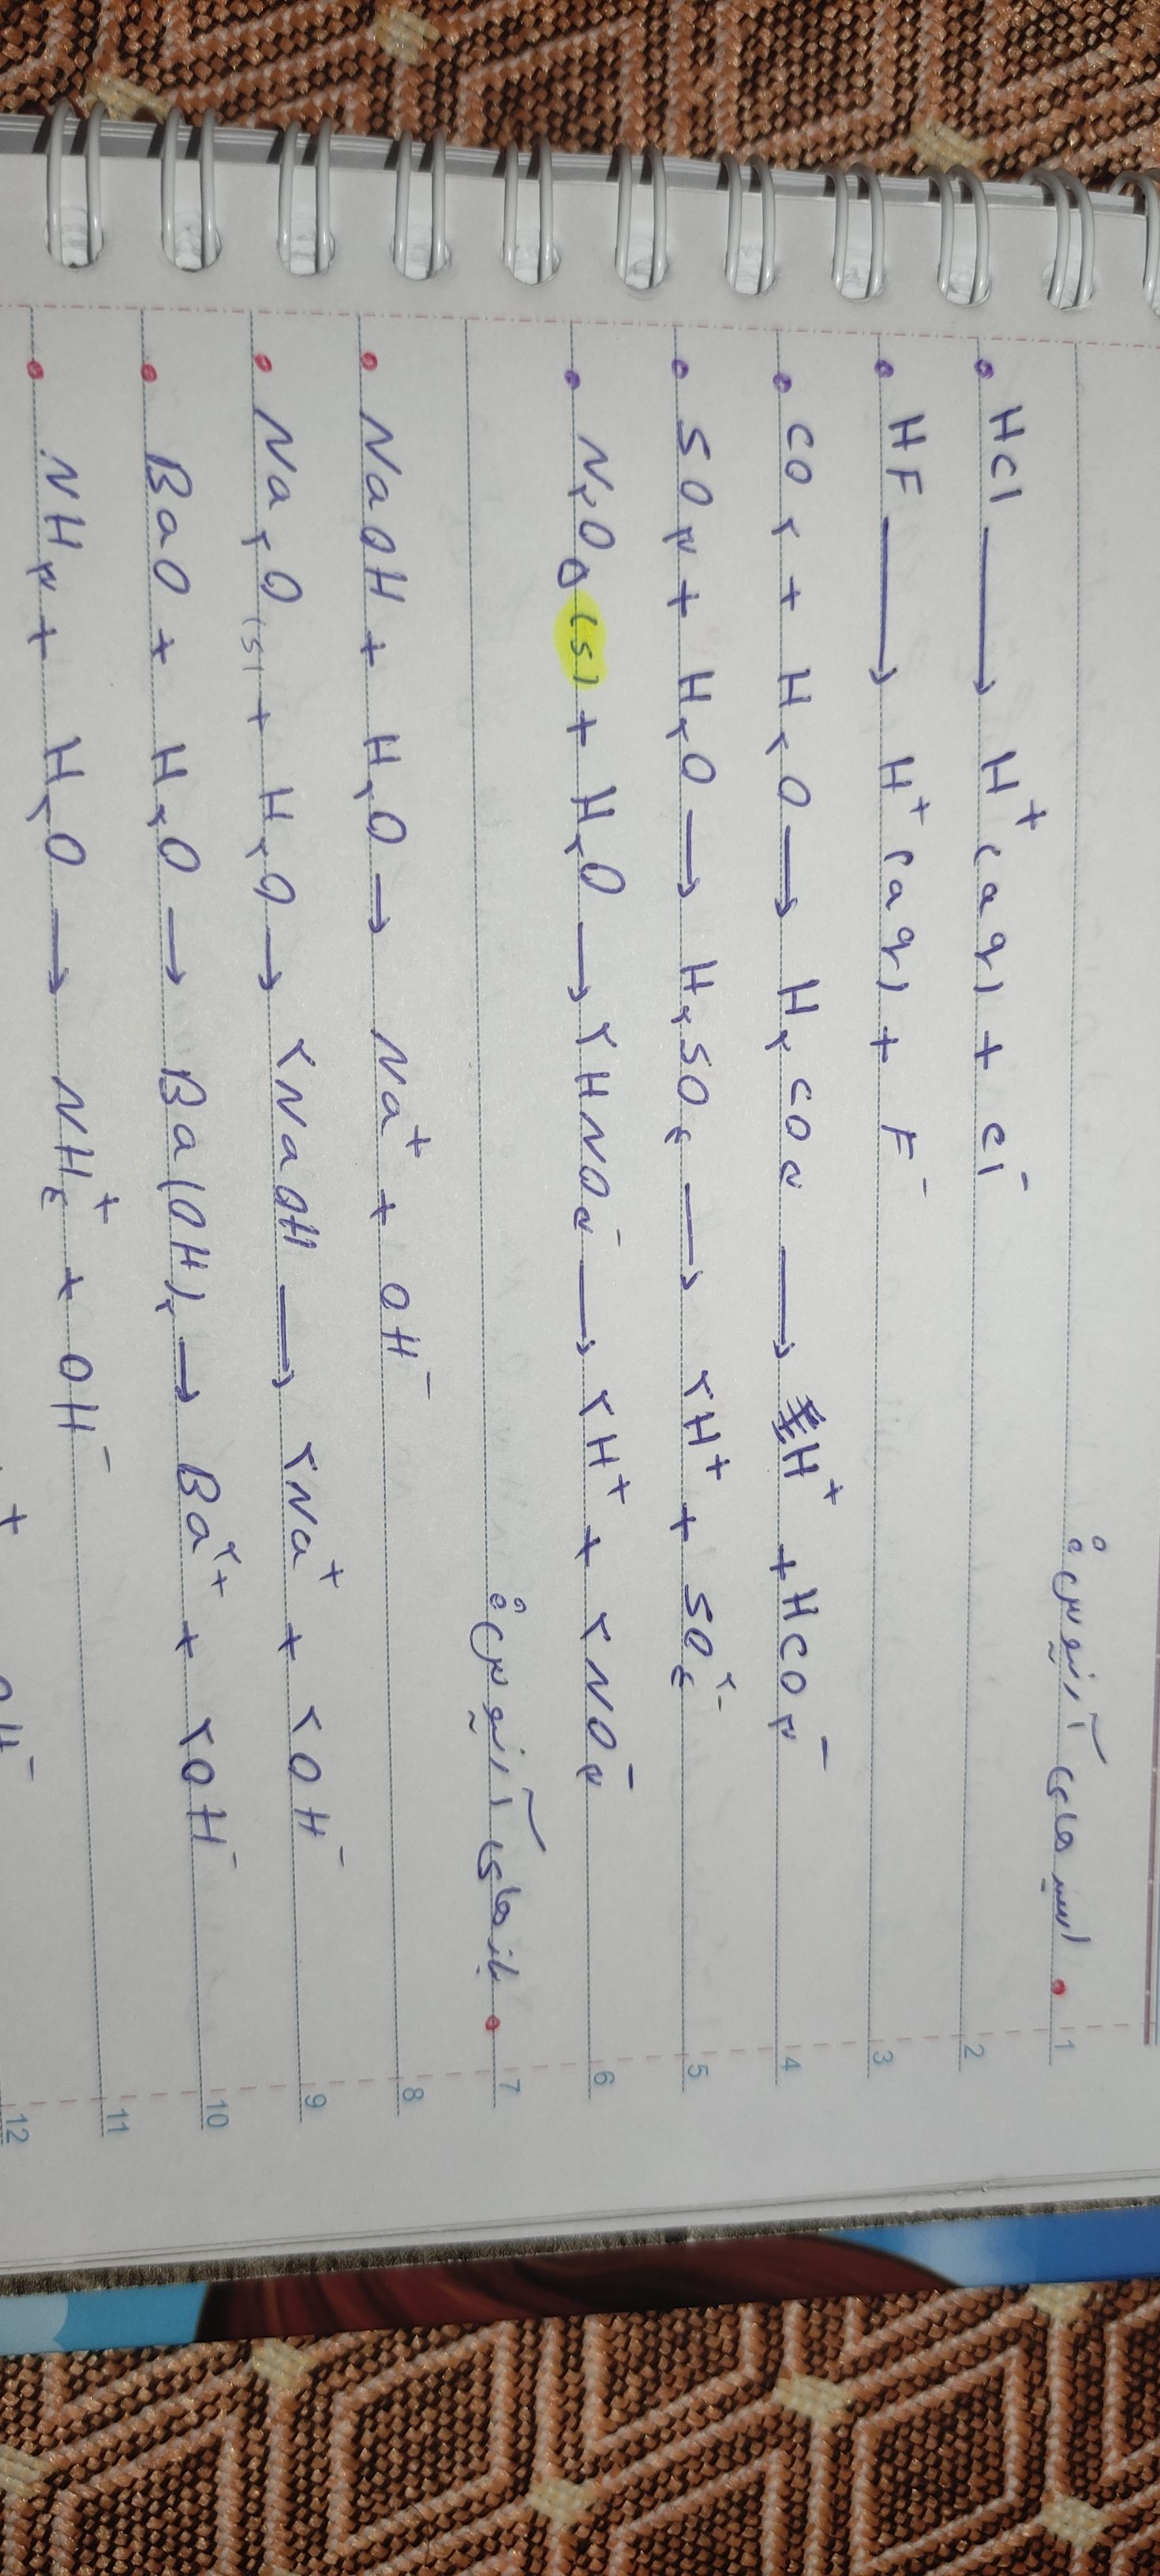 اسیدهای آرنیوس: 1
HCl → H⁺(aq) + Cl⁻ 2
HF → H⁺(aq) + F⁻ 3
CO۲ + H۲O → H۲CO۳ → H⁺ + HCO۳⁻ 4
SO۳ + H۲O → H۲SO۴ → ۲H⁺ + SO۴²⁻ 5
N۲O۵(s) + H۲O → ۲HNO۳⁻ → ۲H⁺ + ۲NO۳⁻ 6
بازهای آرنیوس: 7
NaOH + H۲O → Na⁺ + OH⁻ 8
Na۲O(s) + H۲O → ۲NaOH → ۲Na⁺ + ۲OH⁻ 9
BaO + H۲O → Ba(OH)۲ → Ba²⁺ + ۲OH⁻ 10
NH۳ + H۲O → NH۴⁺ + OH⁻ 11
12